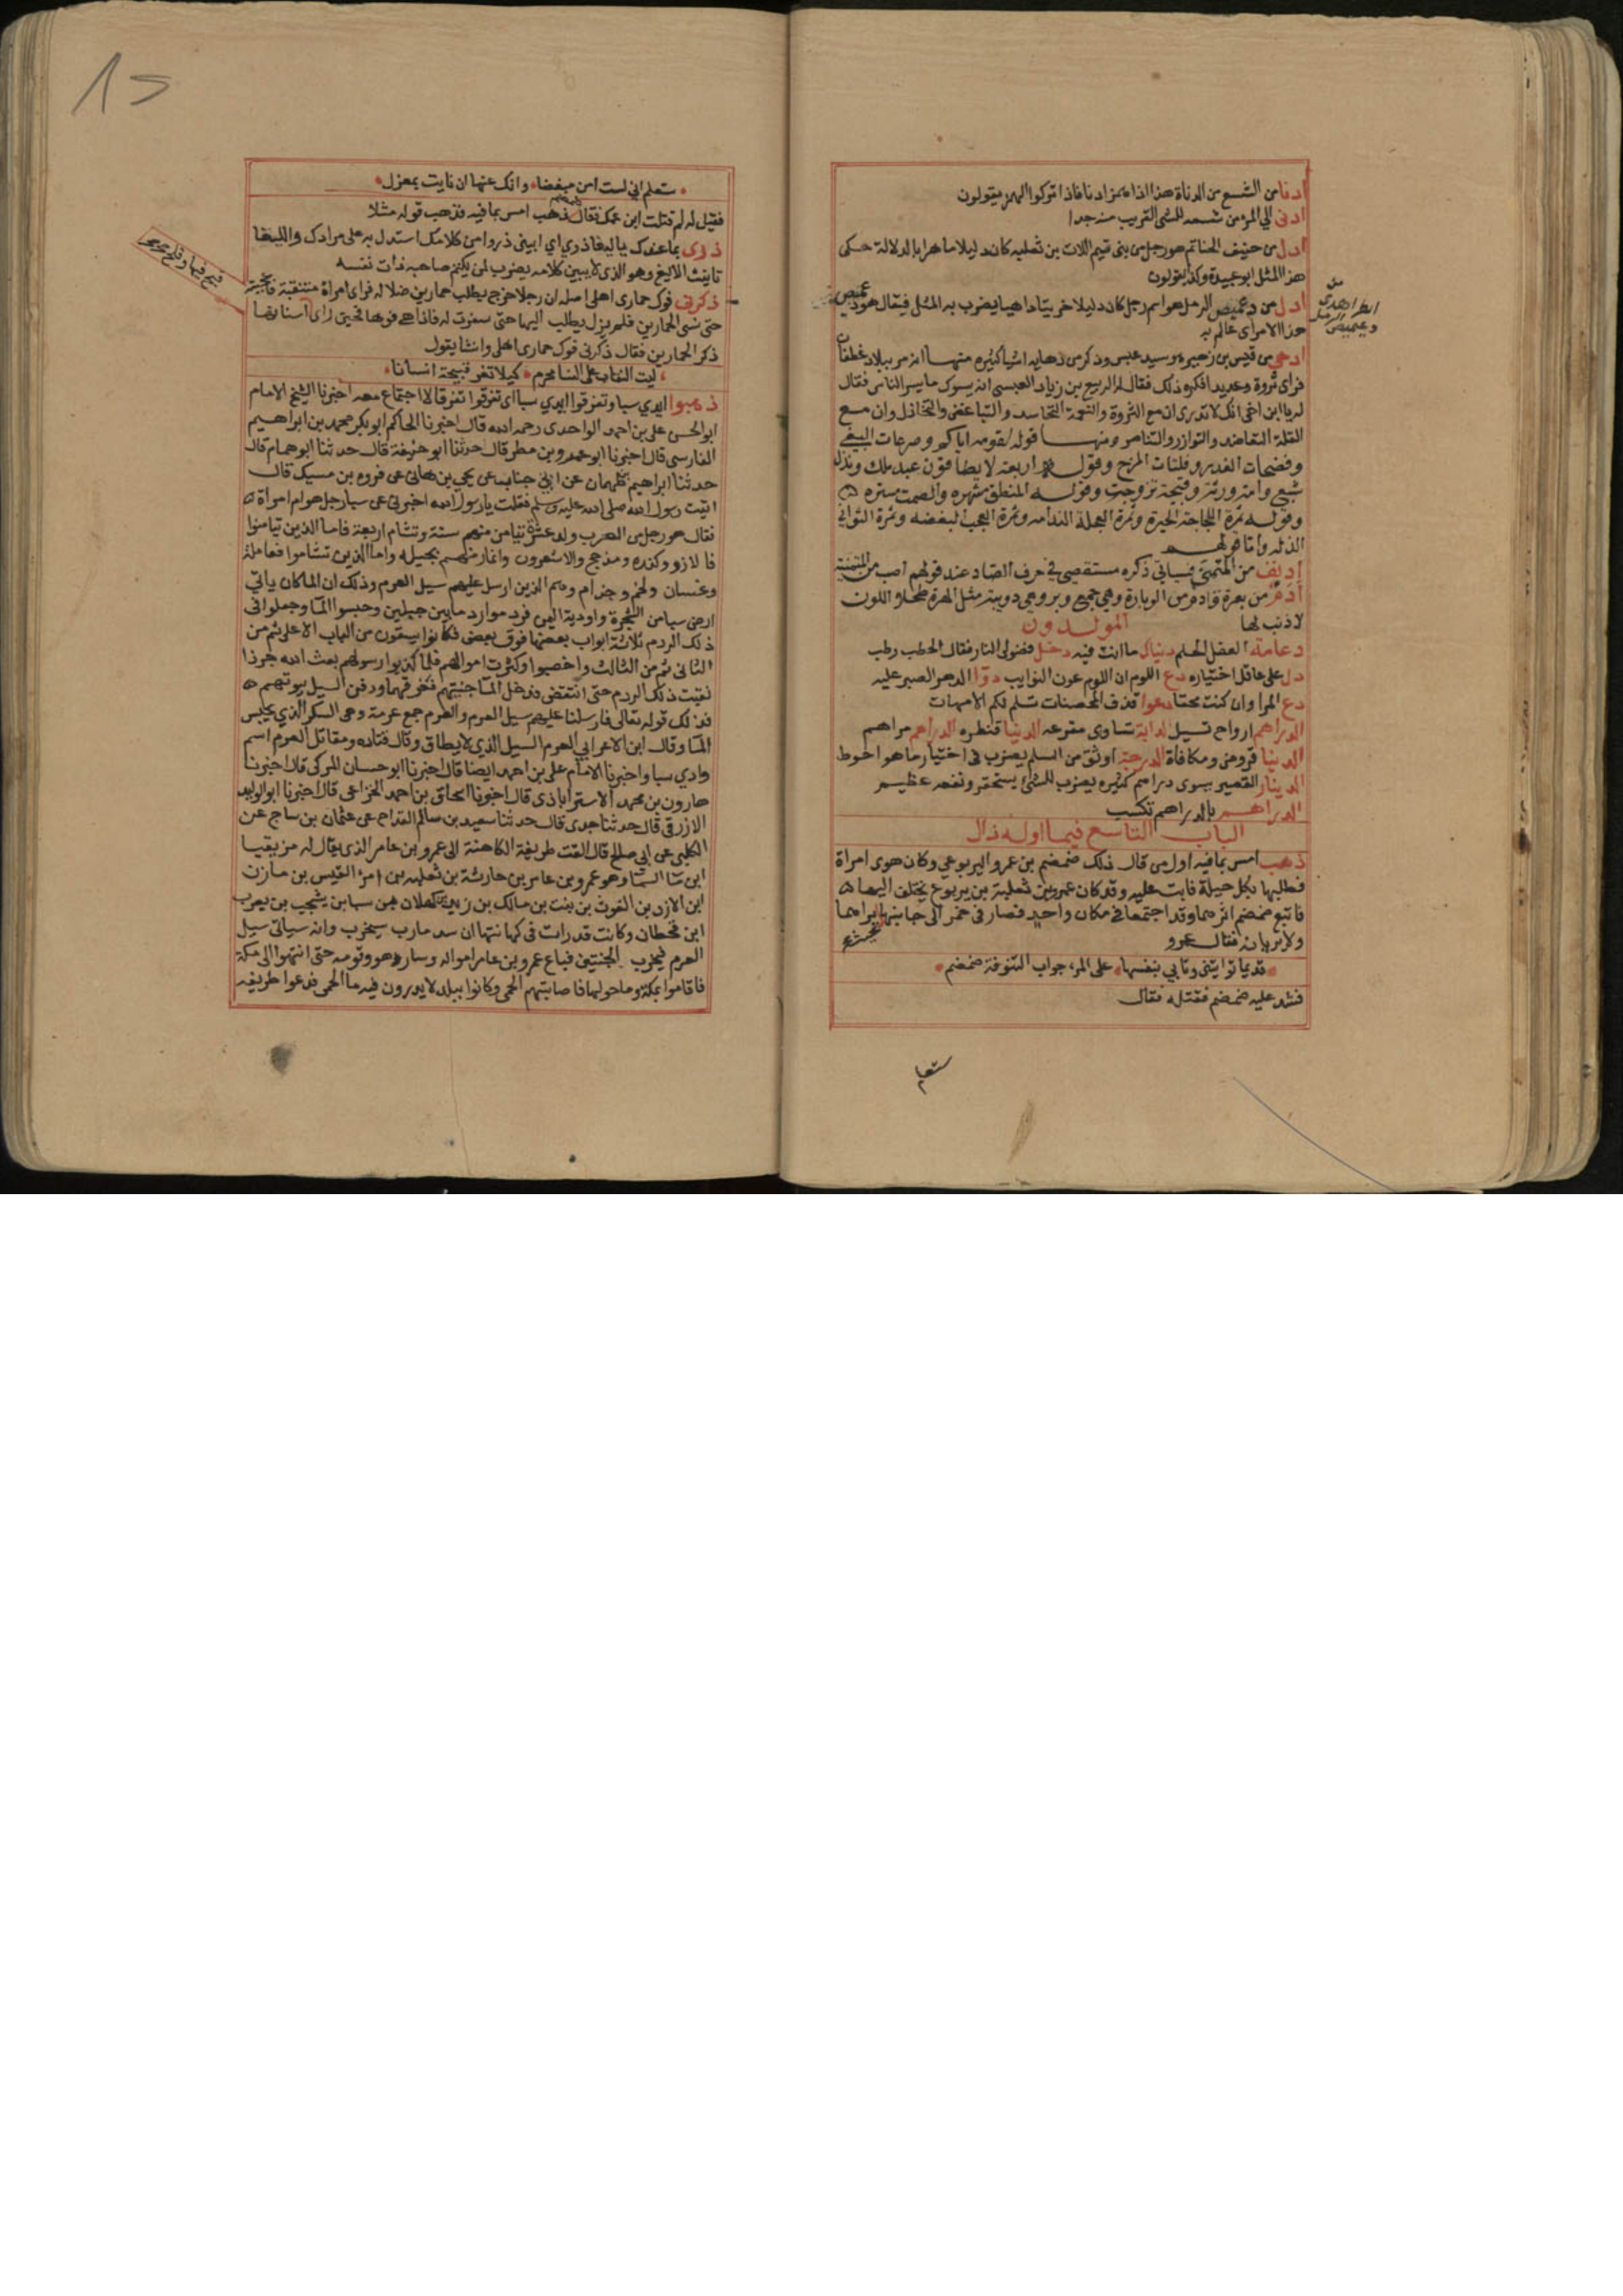 ادنا من الشسع من الدناة هذا اذا همز ادنا فاذا تركوا الهمز يقولون
ادنى الي المرء من شسعه للشى القريب منه جدا
ادل من حنيف الحناتم هو رجل من بنى تيم اللات بن ثعلبه كان دليلا ماهرا بالدلالة حكى
هذا المثل ابو عبيدة وكذا يقولون
ادل من دعميص الرمل هو اسم رجل كان دليلا خريتا داهيا يضرب به المثل فيقال هو دعميص
هذا الامر اى عالم به
ادهى من قيس بن زهير هو سيد عبس وذكر من دهايه اشيا كثيره منها انه مر ببلاد غطفان
فراى ثروة وعديدا فكره ذلك فقال له الربيع بن زياد العبسى انه يسوك ما يسر الناس فقال
له يا ابن اخى انك لا تدرى ان مع الثروة والنعمة التحاسد والتباغض والتخاذل وان مع
القلة التعاضد والتوازر والتناصر ومنها قوله لقومه اياكم وصرعات البغي
وفضحات الغدر وفلتات المزح وقوله اربعة لا يطاقون عبد ملك ونذل
شبع وامة ورثت وقبيحة تزوجت وقوله المنطق مشهره والصمت ستره
وقوله ثمرة اللجاجة الحيرة وثمرة العجلة الندامه وثمرة العجب البغضه وثمرة التواني
الذله واما قولهم
ادنف من المتمني فسياتي ذكره مستقصى في حرف الصاد عند قولهم اصب من المتمنية
ادم من بعرة وادم من الوبارة وهي جمع وبر وهي دويبة مثل الهرة طحلاء اللون
لا ذنب لها
المولدون
دعامة العقل الحلم دنياك ما انت فيه دخل فضولى النار فقال الحطب رطب
دل على عاقل اختياره دع اللوم ان اللوم عون النوايب دوا الدهر الصبر عليه
دع المرا وان كنت محقا دعوا قذف المحصنات تسلم لكم الامهات
الدراهم ارواح تسيل الدابة تساوى مقرعه الدنيا قنطره الدراهم مراهم
الدنيا قروض ومكافاة الدرجة اوثق من السلم يضرب في اختيار ما هو احوط
الدينار القصير يسوى دراهم كثيره يضرب للشئ يستحقر ونفعه عظيم
الدراهم بالدراهم تكسب
الباب التاسع فيما اوله ذال
ذهب امس بما فيه اول من قال ذلك ضمضم بن عمرو اليربوعي وكان هوى امراة
فطلبها بكل حيلة فابت عليه وقد كان عمرو بن ثعلبة بن يربوع يختلف اليها
فاتبع ضمضم اثرهما وقد اجتمعا في مكان واحد فصار فى خمر الى جانبهما يراهما
ولا يريانه فقال عمرو
قديما تواتيني وتابي بنفسها على المرء جواب التنوفة ضمضم
فشد عليه ضمضم فقتله فقال
ستعلم
ستعلم اني لست امن مبغضا وانك عنها ان نايت بمعزل
فقيل له لم قتلت ابن عمك فقال ذهب امس بما فيه فذهب قوله مثلا
ذرى بما عندك يا ليغا ذري اي ابيني ذروا من كلامك استدل به على مرادك والليغا
تانيث الاليغ وهو الذى لا يبين كلامه يضرب لمن يكتم صاحبه ذات نفسه
ذكرني فوك حمارى اهلى اصله ان رجلا خرج يطلب حمارين ضلا له فراى امراة متنقبة فاعجبته
حتى نسى الحمارين فلم يزل يطلب اليها حتى سفرت له فاذا هي فوهاء فحين راى اسنانها
ذكر الحمارين فقال ذكرنى فوك حمارى اهلى وانشا يقول
ليت النقاب على النسا محرم كيلا تغر قبيحة انسانا
ذهبوا ايدي سبا وتفرقوا ايدي سبا اى تفرقوا تفرقا لا اجتماع معه اخبرنا الشيخ الامام
ابو الحسن على بن احمد الواحدى رحمه الله قال اخبرنا الحاكم ابو بكر محمد بن ابراهيم
الفارسى قال اخبرنا ابو عمرو بن مطر قال حدثنا ابو خليفة قال حدثنا ابو همام قال
حدثنا ابراهيم بن طهمان عن ابي جناب عن يحيى بن هانئ عن فروه بن مسيك قال
اتيت رسول الله صلى الله عليه وسلم فقلت يا رسول الله اخبرنى عن سبا رجل هو ام امراة
فقال هو رجل من العرب ولد عشرة تيامن منهم ستة وتشام اربعة فاما الذين تيامنوا
فالازد وكنده ومذحج والاشعرون وانمار منهم بجيله واما الذين تشاموا فعامله
وغسان ولخم وجذام وهم الذين ارسل عليهم سيل العرم وذلك ان الما كان ياتي
ارض سبا من الشجرة واودية اليمن فردموا ردما بين جبلين وحبسوا الما وجعلوا في
ذلك الردم ثلاثة ابواب بعضها فوق بعض فكانوا يسقون من الباب الاعلى ثم من
الثانى ثم من الثالث واخصبوا وكثرت اموالهم فلما كذبوا رسولهم بعث الله جرذا
نقبت ذلك الردم حتى انتقض فدخل الما جنتيهم فغرقهما ودفن السيل بيوتهم
فذلك قوله تعالى فارسلنا عليهم سيل العرم والعرم جمع عرمة وهى السكر الذي يحبس
الما وقال ابن الاعرابي العرم السيل الذي لا يطاق وقال قتاده ومقاتل العرم اسم
وادي سبا واخبرنا الامام على بن احمد ايضا قال اخبرنا ابو حسان المزكى قال اخبرنا
هارون بن محمد الاستراباذى قال اخبرنا اسحاق بن احمد الخزاعى قال اخبرنا ابو الوليد
الازرقى قال حدثنا جدى قال حدثنا سعيد بن سالم القداح عن عثمان بن ساج عن
الكلبى عن ابى صالح قال القت طريفة الكاهنة الى عمرو بن عامر الذى يقال له مزيقيا
ابن ما السما وهو عمرو بن عامر بن حارثة بن ثعلبه بن امرء القيس بن مازن
ابن الازد بن الغوث بن نبت بن مالك بن زيد بن كهلان بن سبا بن يشجب بن يعرب
ابن قحطان وكانت قد رات في كهانتها ان سد مارب سيخرب وانه سياتى سيل
العرم فيخرب الجنتين فباع عمرو بن عامر امواله وسار هو وقومه حتى انتهوا الى مكة
فاقاموا بمكة وما حولها فاصابتهم الحمى وكانوا ببلد لا يدرون فيه ما الحمى فدعوا طريفه